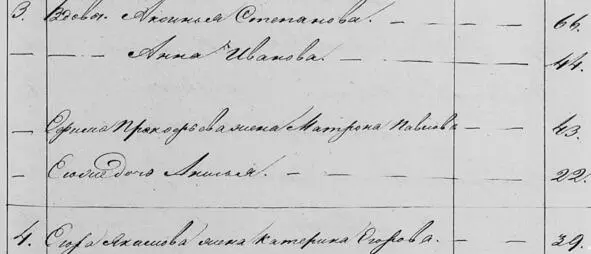 3. Вдова Аксинья Степанова. — — 66.
— — Анна Иванова. — — — 44.
— Ефима Прокофьева жена Матрона Павлова — — 43.
— Его же дочь Акилья. — — — 22.
4. Егора Якимова жена Катерина Егорова. — — 39.